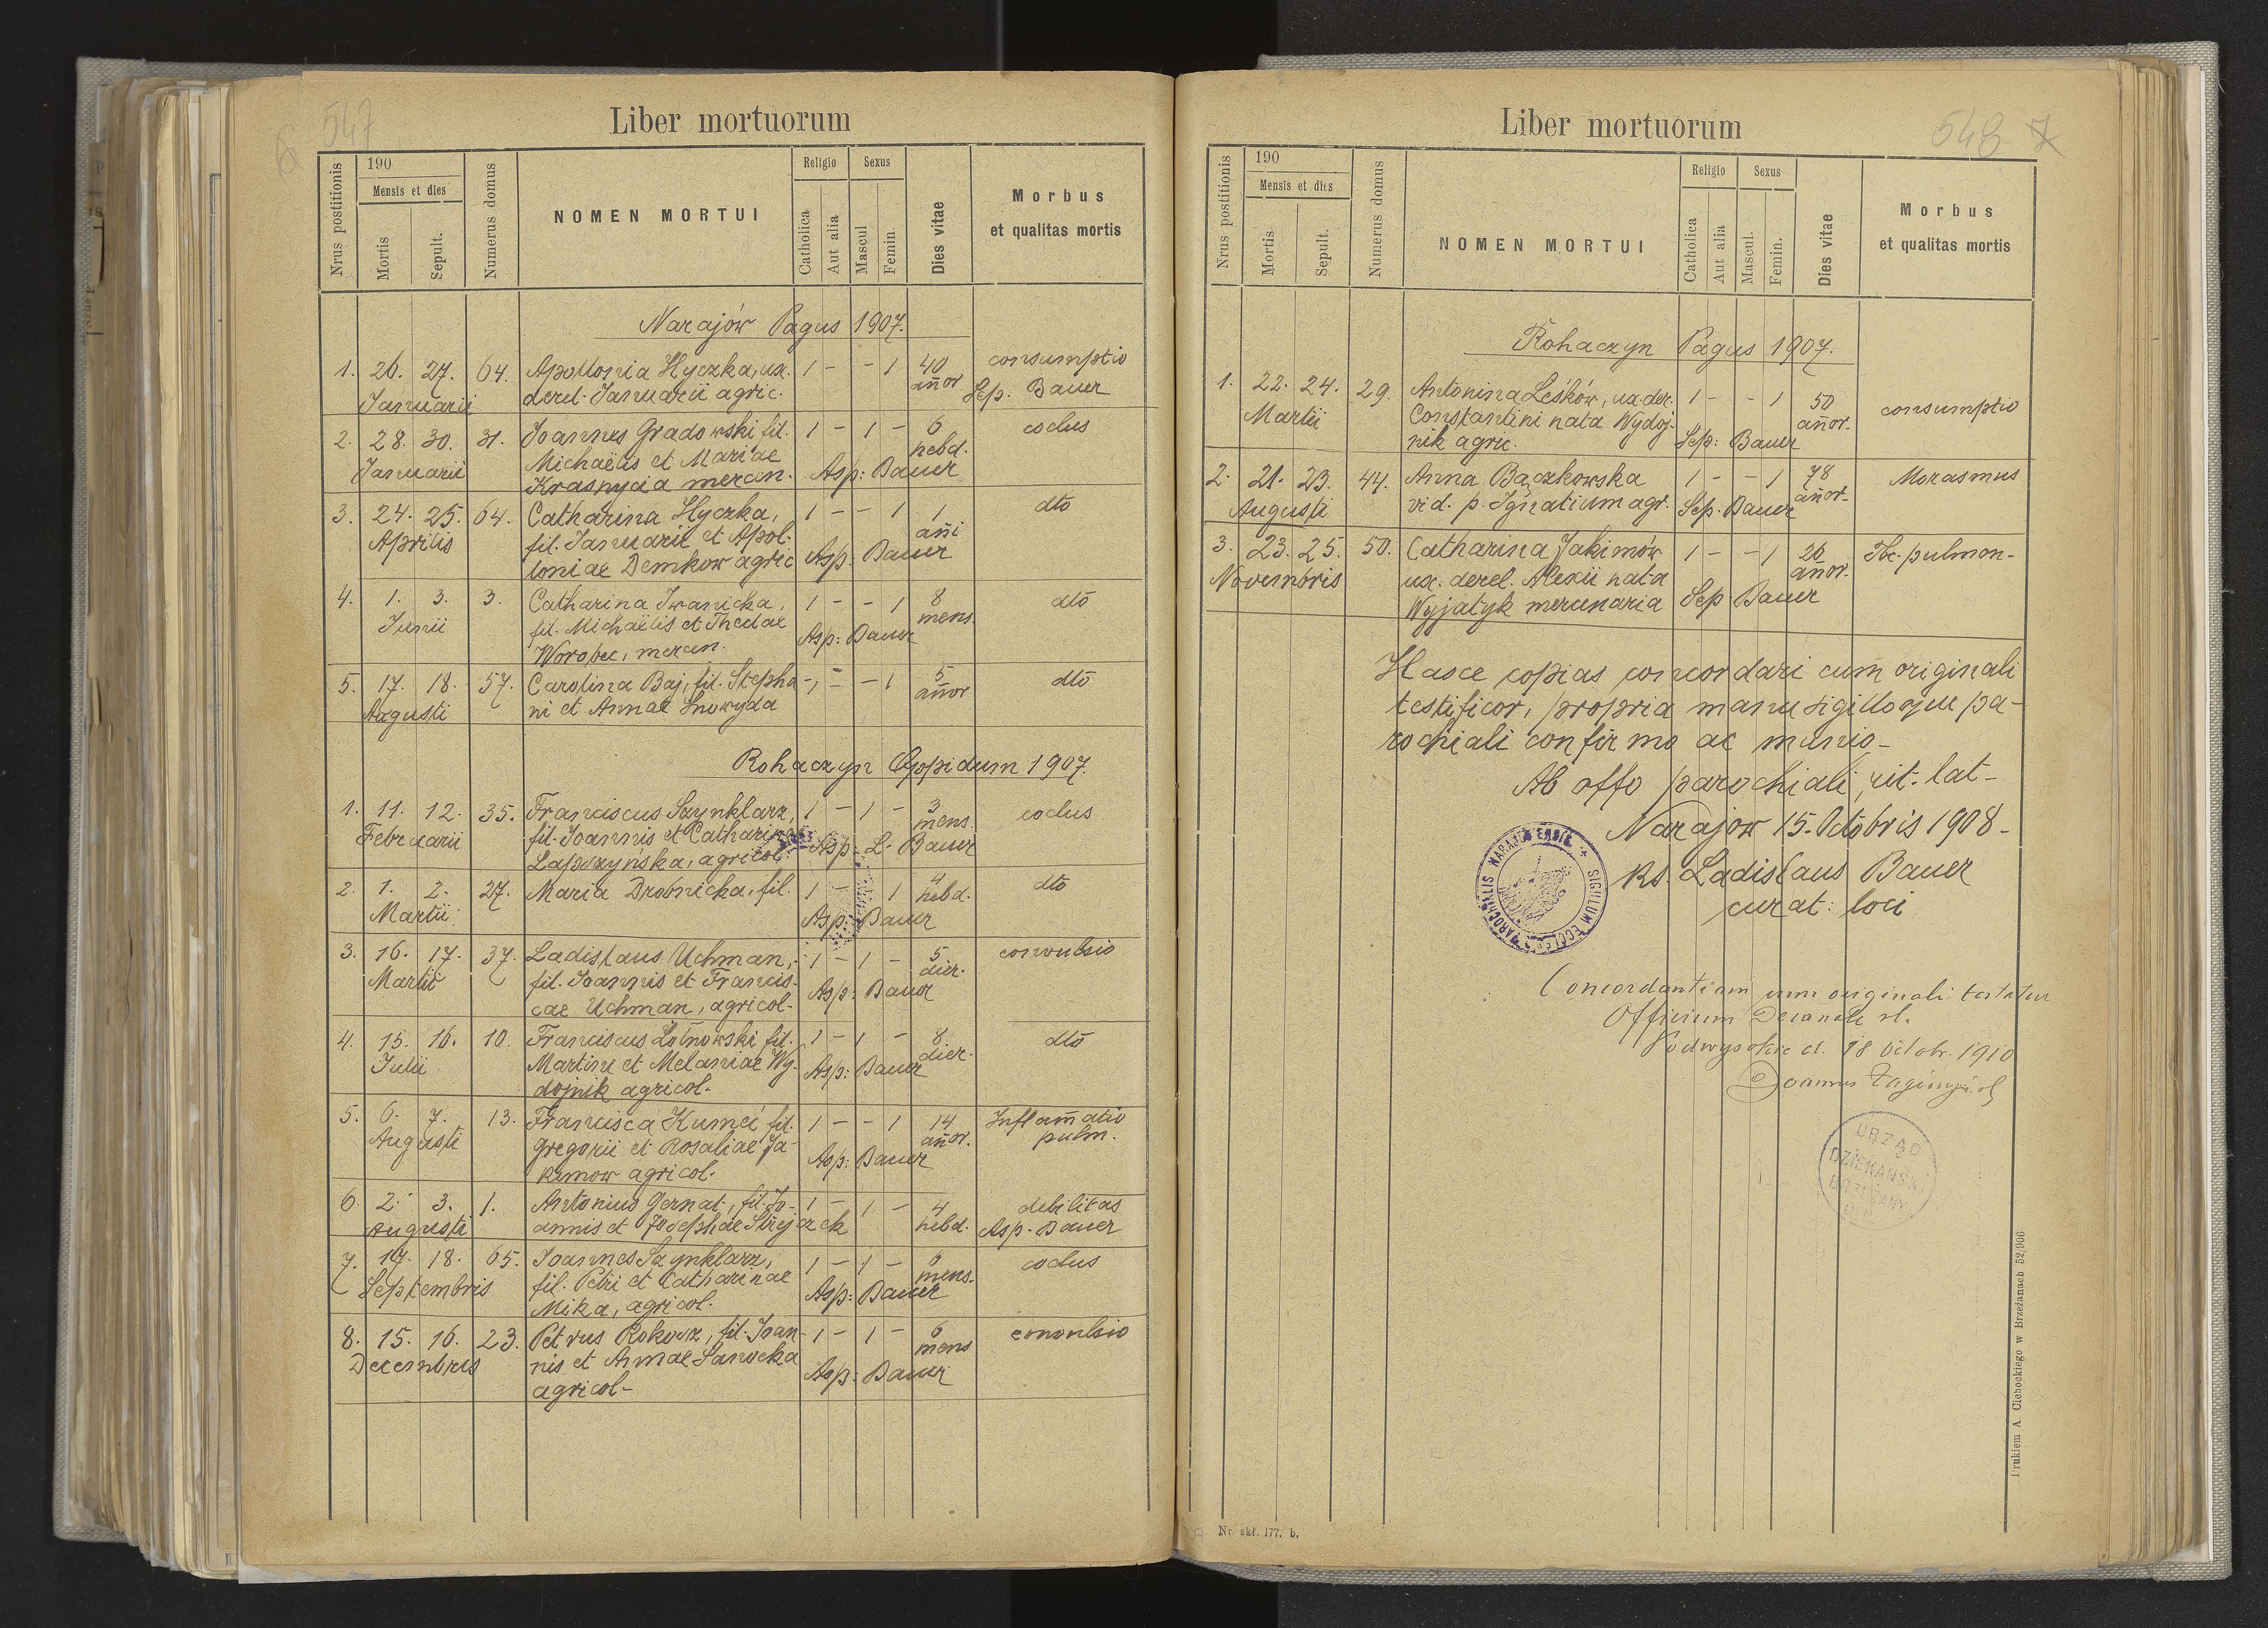 547
6
Liber mortuorum
Nrus postitionis
190
Mensis et dies
Mortis
Sepult.
Numerus domus
NOMEN MORTUI
Religio
Catholica
Aut alia
Sexus
Mascul
Femin.
Dies vitae
Morbus
et qualitas mortis
Narajów Pagus 1907.
1. 26. 27. 64. Apollonia Hyczka, ux. 1 - - 1 40 consumptio
Januarii derel. Januarii agric. añor Sep. Bauer
2. 28. 30. 31. Joannes Gradowski fil. 1 - 1 - 6 coclus
Januarii Michaëlis et Mariae hebd.
Krasnycia mercen. Asp: Bauer
3. 24. 25. 64. Catharina Hyczka, 1 - - 1 1 dto
Aprilis fil. Januarii et Apol- añi
loniae Demkow agric Asp: Bauer
4. 1. 3. 3. Catharina Iwanicka, 1 - - 1 8 dto
Junii fil. Michaëlis et Theclae mens.
Worobec, mercen. Asp: Bauer
5. 17. 18. 57. Carolina Baj, fil. Stepha- 1 - - 1 5 dto
Augusti ni et Annae Snowyda añor
Rohaczyn Oppidum 1907.
1. 11. 12. 35. Franciscus Szynklarz, 1 - 1 - 3 coclus
Februarii fil. Joannis et Catharinae mens.
Lapczyńska, agricol. Asp. L. Bauer
2. 1. 2. 27. Maria Drobnicka, fil. 1 - 1 4 dto
Martii hebd.
Asp: Bauer
3. 16. 17. 37. Ladislaus Uchman, 1 - 1 - 5 convulsio
Martii fil. Joannis et Francis- dier.
cae Uchman, agricol. Asp: Bauer
4. 15. 16. 10. Franciscus Łotnowski fil. 1 - 1 - 8 dto
Julii Martini et Melaniae Wy- dier.
dojnik agricol. Asp: Bauer
5. 6. 7. 13. Francisca Kumeć fil. 1 - - 1 14 Inflam̃atio
Augusti Gregorii et Rosaliae Ja- añor. pulm.
kimow agricol. Asp: Bauer
6. 2. 3. 1. Antonius Gernat, fil. Jo- 1 - 1 - 4 debilitas
Augusti annis et Josephae hebd. Asp. Bauer
7. 17. 18. 65. Joannes Szynklarz, 1 - 1 - 6 coclus
Septembris fil. Petri et Catharinae mens.
Mika, agricol. Asp: Bauer
8. 15. 16. 23. Petrus Rokosz, fil. Joan- 1 - 1 - 6 convulsio
Decembris nis et Annae Sanocka mens
agricol- Asp: Bauer
548 7
Liber mortuorum
Nrus postitionis
190
Mensis et dies
Mortis
Sepult.
Numerus domus
NOMEN MORTUI
Religio
Catholica
Aut alia
Sexus
Mascul.
Femin.
Dies vitae
Morbus
et qualitas mortis
Rohaczyn Pagus 1907.
1. 22. 24. 29. Antonina Leśków, ux. der. 1 - - 1 50 consumptio
Martii Constantini nata Wydoj- añor.
nik agric. Sep: Bauer
2. 21. 23. 44. Anna Bączkowska 1 - - 1 78 Morasmus
Augusti vid. p. Ignatium agr. añor.
Sep. Bauer
3. 23. 25. 50. Catharina Jakimów 1 - - 1 26 Tbc. pulmon-
Novembris ux. derel. Alexii nata añor.
Wyjatyk mercenaria Sep Bauer
Hasce copias concordari cum originali
testificor, propria manu sigilloque pa-
rochiali confirmo ac munio-
Ab offo parochiali rit. lat-
Narajów 15. Octobris 1908-
Ks. Ladislaus Bauer
curat: loci
SIGILUM ECCLE PAROCHIALIS NARAJOVIENSIS
Concordantiam cum originali testatur
Officium Decanale rl.
Podwysokie d. 18 Octobr. 1910
Joannes
URZĄD
DZIEKAŃSKI
BRZEŻANY
Nr. skł. 177. b.
Drukiem A. Cichockiego w Brzeżanach 52/906